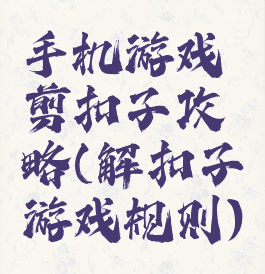 手机游戏
剪扣子攻
略(解扣子
游戏规则)